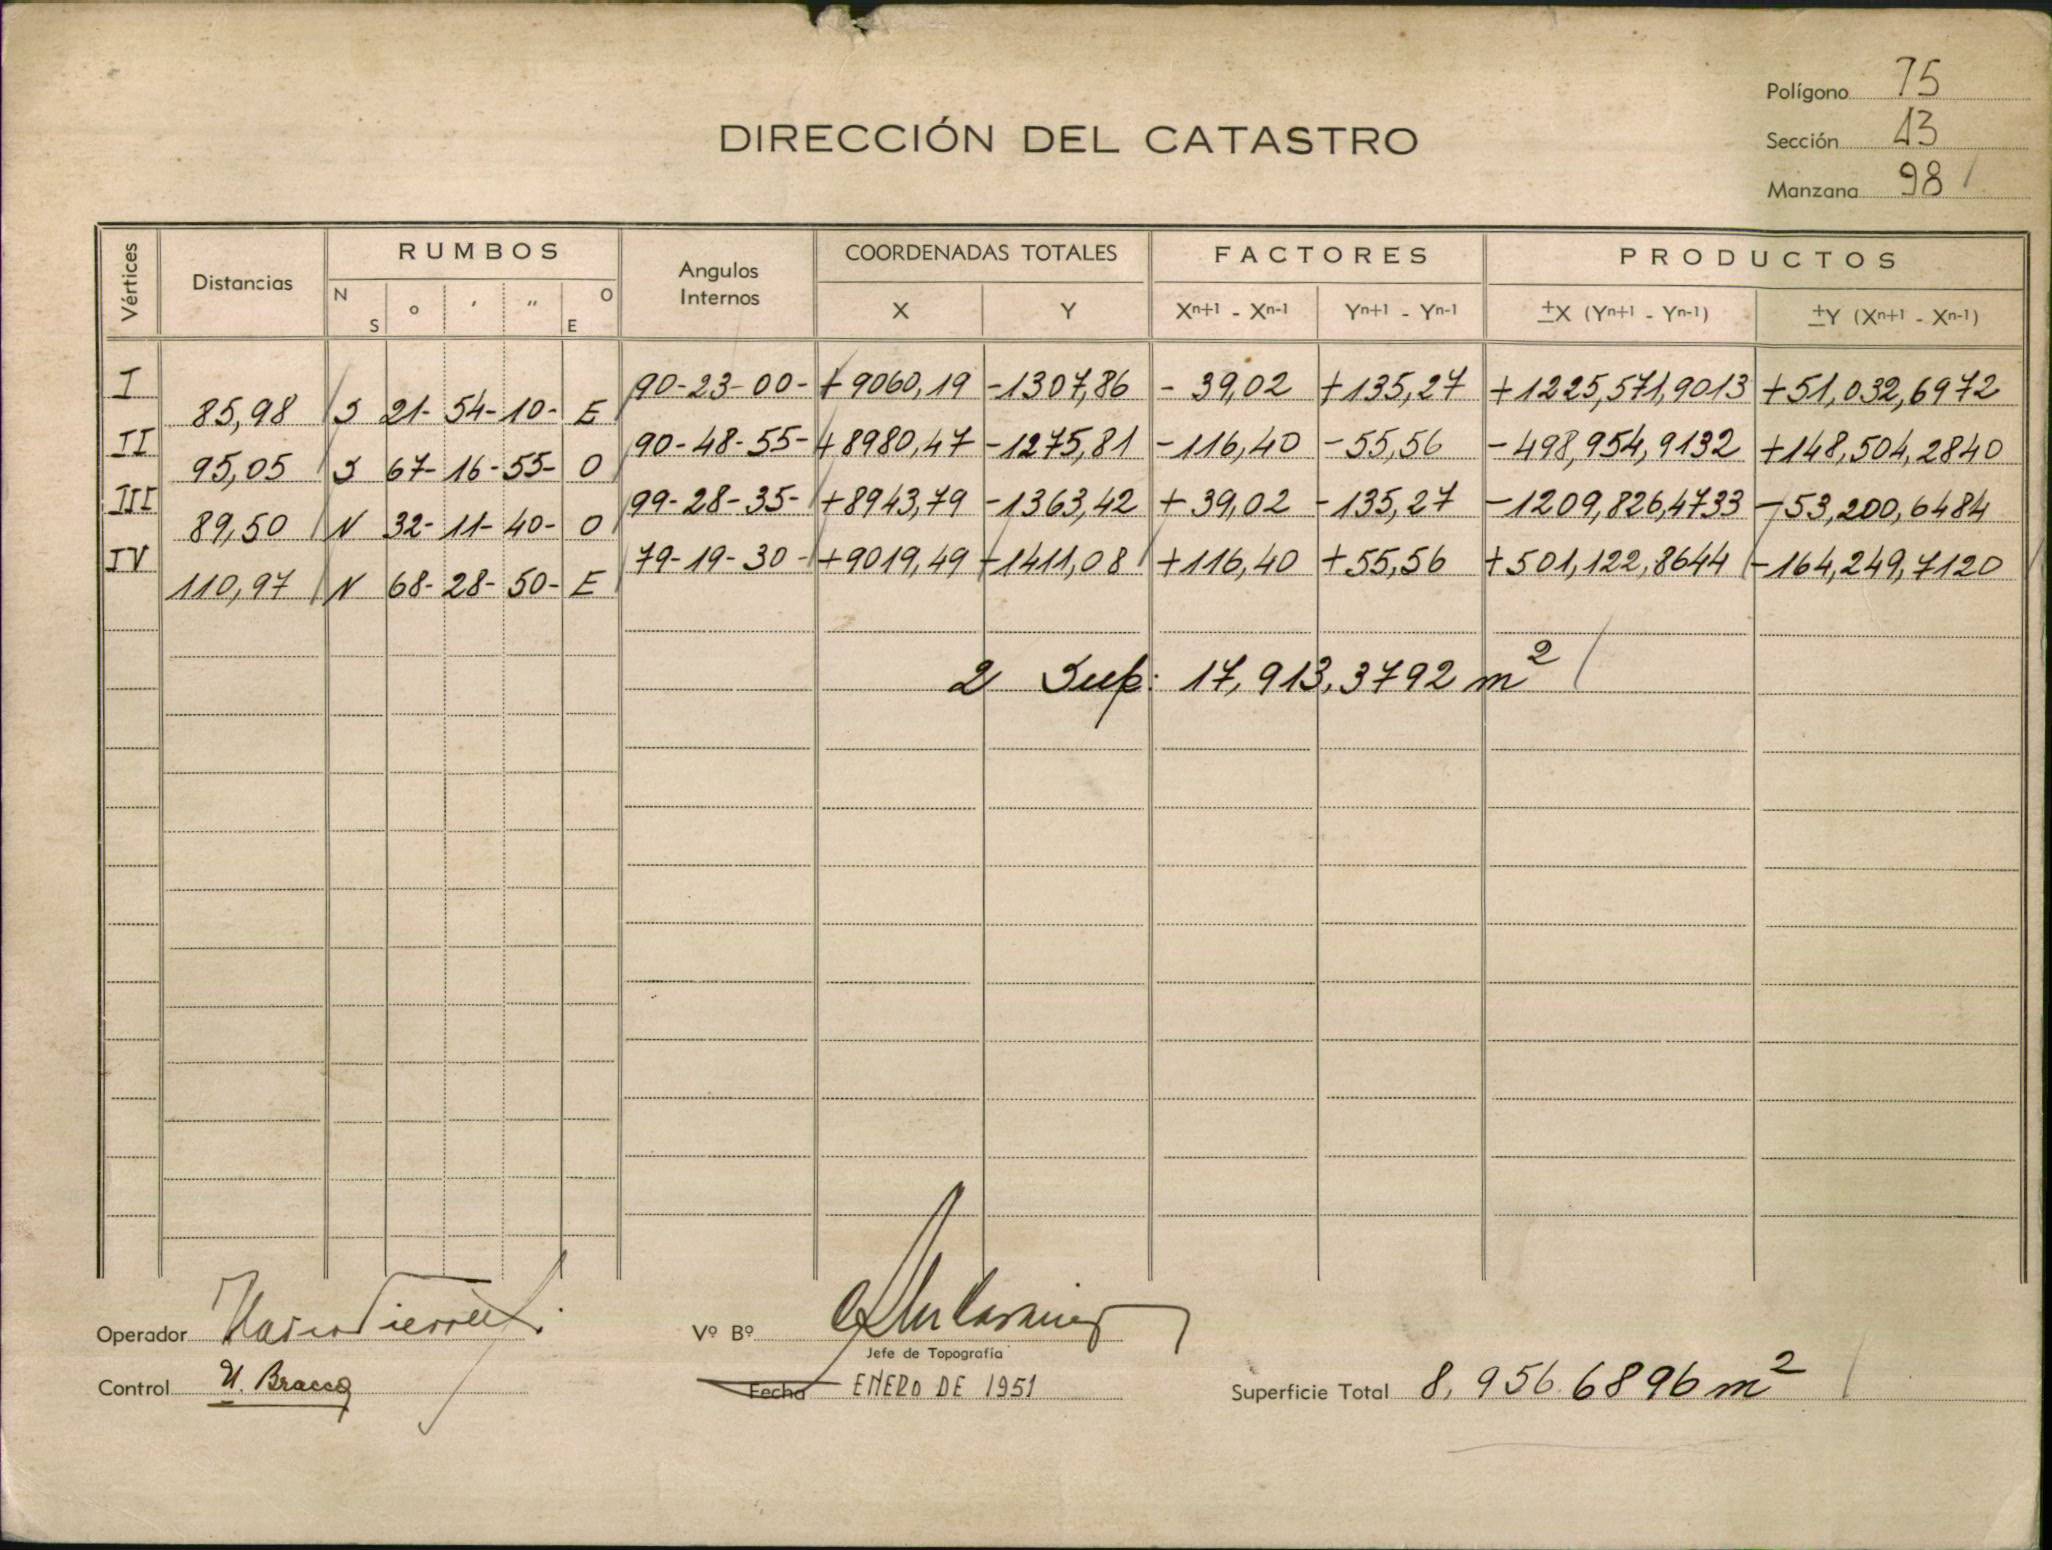 Polígono 75
DIRECCIÓN DEL CATASTRO
Sección 13
Manzana 98
Vértices Distancias RUMBOS Angulos Internos COORDENADAS TOTALES FACTORES PRODUCTOS
N S o ' '' O E X Y Xn+1 - Xn-1 Yn+1 - Yn-1 ±X (Yn+1 - Yn-1) ±Y (Xn+1 - Xn-1)
I 90-23-00- +9060,19 -1307,86 -39,02 +135,27 +1225,571,9013 +51,032,6972
85,98 S 21- 54- 10- E
II 90-48-55- +8980,47 -1275,81 -116,40 -55,56 -498,954,9132 +148,504,2840
95,05 S 67- 16- 55- O
III 99-28-35- +8943,79 -1363,42 +39,02 -135,27 -1209,826,4733 -53,200,6484
89,50 N 32- 11- 40- O
IV 79-19-30- +9019,49 -1411,08 +116,40 +55,56 +501,122,8644 -164,249,7120
110,97 N 68- 28- 50- E
2 Sup: 17,913,3792 m2
Operador
Vº Bº
Jefe de Topografía
Control U. Bracco
Fecha ENERO DE 1951
Superficie Total 8,956.6896 m2